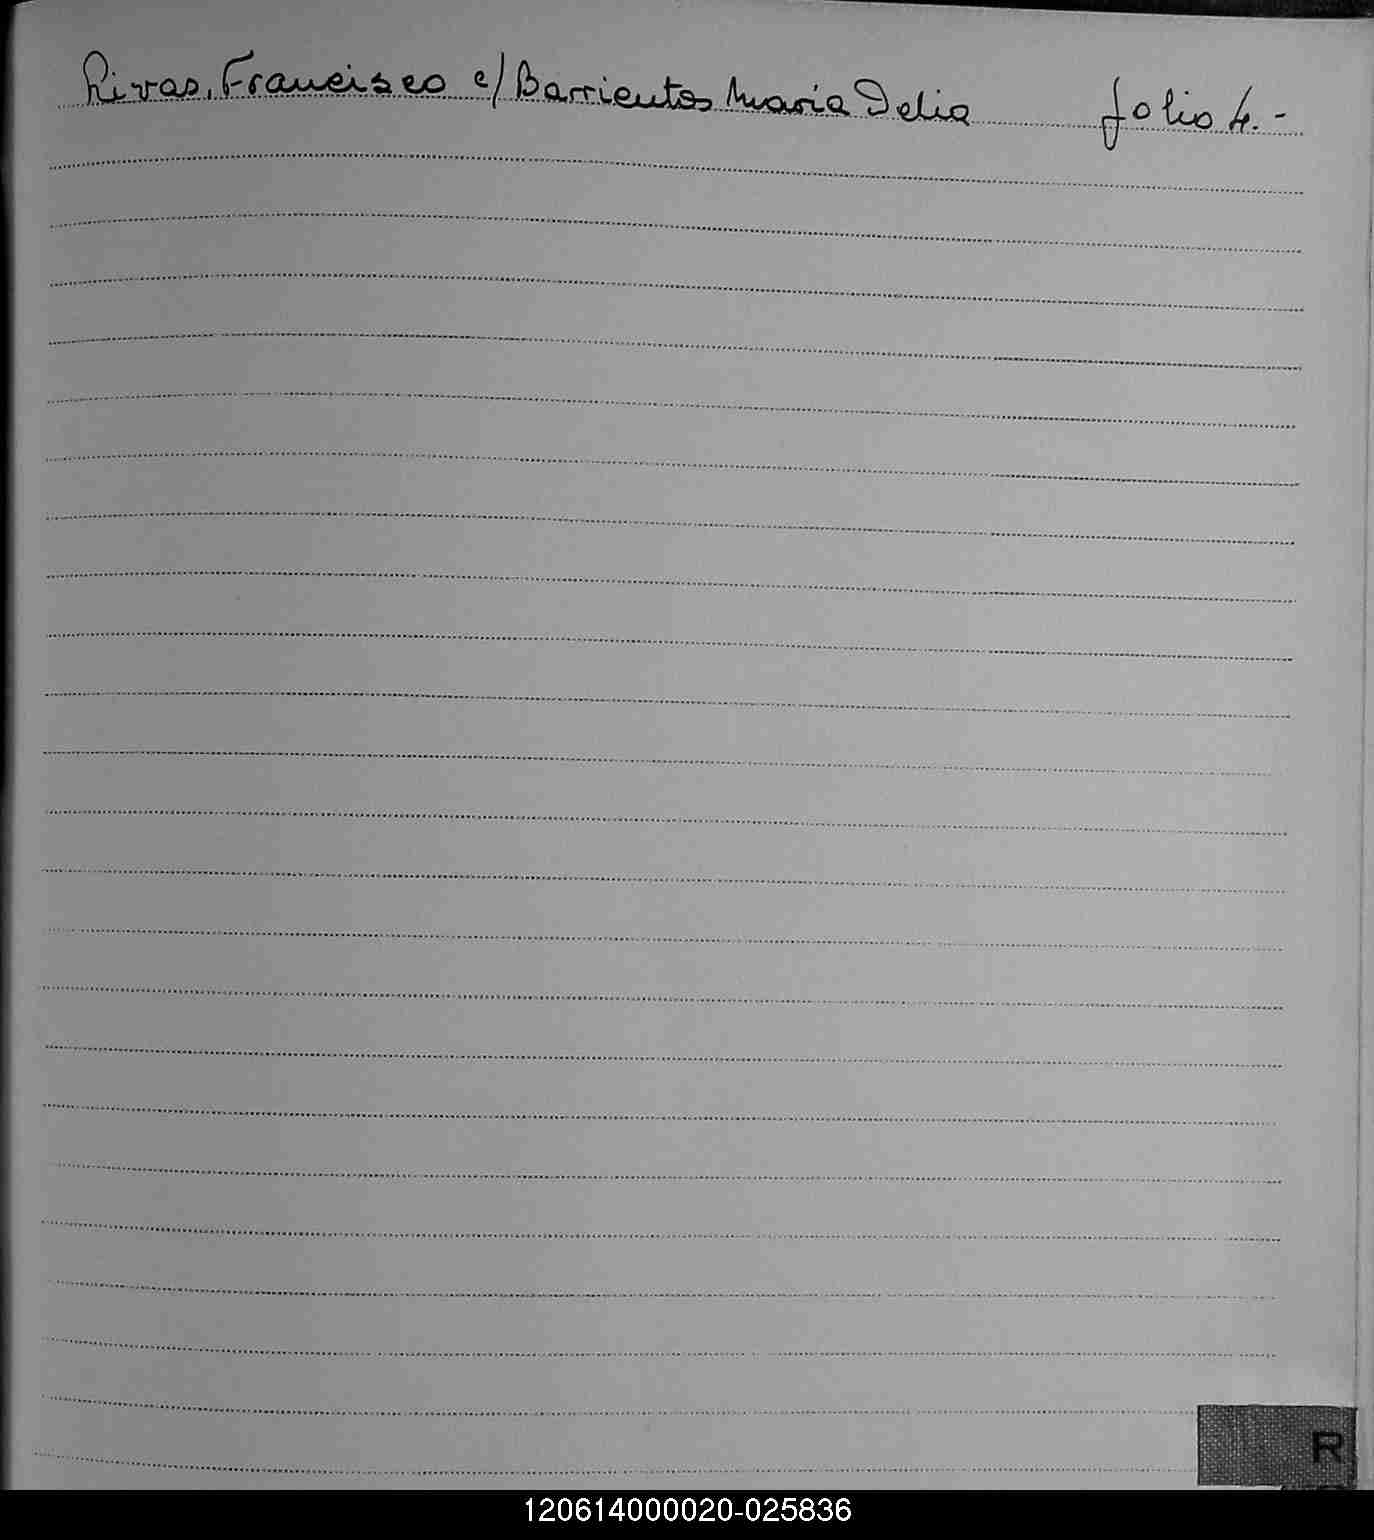 Rivas, Francisco c/ Barrientos Maria Delia folio 4.-
R
120614000020-025836